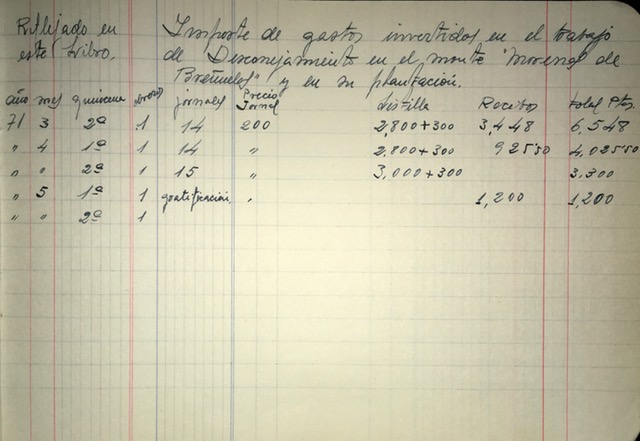 Reflejado en
este Libro.
Importe de gastos invertidos en el trabajo
de Desconejamiento en el monte "Morenal de
Breñuelos" y en su plantación.
año mes quincena obreros jornales Precio Jornal Listilla Recibos total Ptas.
71 3 2ª 1 14 200 2,800+300 3,448 6,548
" 4 1ª 1 14 " 2,800+300 925 50 4,025 50
" " 2ª 1 15 " 3,000+300 3,300
" 5 1ª 1 gratificación " 1,200 1,200
" " 2ª 1